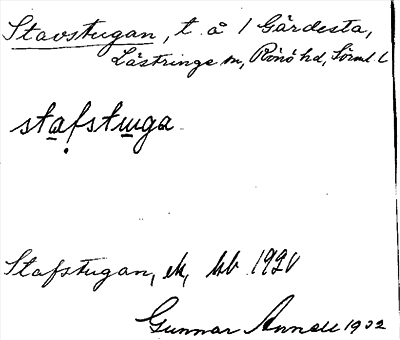 Stavstugan, t. å 1 Gärdesta,
Lästringe sn, Rönö hd, Sörml. l.
stafstuga
Stafstugan, ek, kb 1920
Gunnar Annell 1932